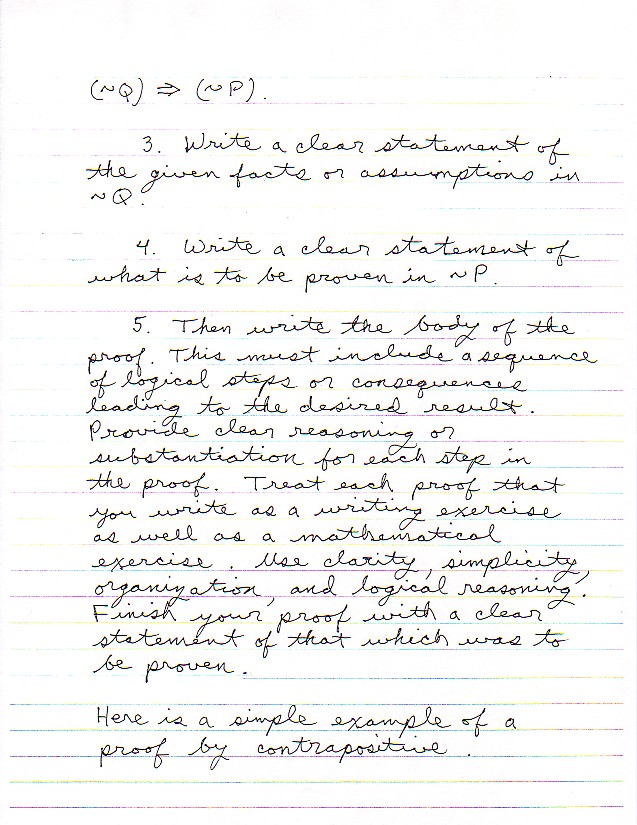 (~Q) ⇒ (~P).
3. Write a clear statement of
the given facts or assumptions in
~Q.
4. Write a clear statement of
what is to be proven in ~P.
5. Then write the body of the
proof. This must include a sequence
of logical steps or consequences
leading to the desired result.
Provide clear reasoning or
substantiation for each step in
the proof. Treat each proof that
you write as a writing exercise
as well as a mathematical
exercise. Use clarity, simplicity,
organization, and logical reasoning.
Finish your proof with a clear
statement of that which was to
be proven.
Here is a simple example of a
proof by contrapositive.